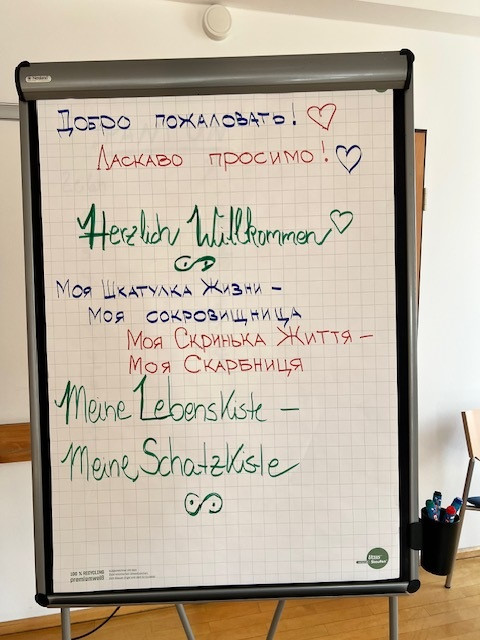 Добро пожаловать!
Ласкаво просимо!
Herzlich Willkommen
Моя Шкатулка Жизни –
Моя сокровищница
Моя Скринька Життя –
Моя Скарбниця
Meine Lebenskiste –
Meine Schatzkiste
100 % RECYCLING
premiumweiß